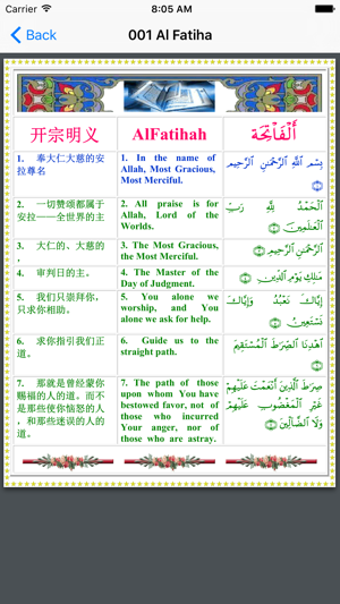 Carrier 8:05 AM
Back 001 Al Fatiha
开宗明义 AlFatihah أَلْفَاتِحَة
1. 奉大仁大慈的安
拉尊名
1. In the name of
Allah, Most Gracious,
Most Merciful.
بِسْمِ ٱللَّهِ ٱلرَّحْمَٰنِ ٱلرَّحِيمِ
2. 一切赞颂都属于
安拉——全世界的主
2. All praise is for
Allah, Lord of the
Worlds.
ٱلْحَمْدُ لِلَّهِ رَبِّ
ٱلْعَٰلَمِينَ
3. 大仁的、大慈的
,
3. The Most Gracious,
the Most Merciful.
ٱلرَّحْمَٰنِ ٱلرَّحِيمِ
4. 审判日的主。
4. The Master of the
Day of Judgment.
مَٰلِكِ يَوْمِ ٱلدِّينِ
5. 我们只崇拜你,
只求你相助。
5. You alone we
worship, and You
alone we ask for help.
إِيَّاكَ نَعْبُدُ وَإِيَّاكَ
نَسْتَعِينُ
6. 求你指引我们正
道。
6. Guide us to the
straight path.
ٱهْدِنَا ٱلصِّرَٰطَ ٱلْمُسْتَقِيمَ
7. 那就是曾经蒙你
赐福的人的道。而不
是那些使你恼怒的人
,和那些迷误的人的
道。
7. The path of those
upon whom You have
bestowed favor, not of
those who incurred
Your anger, nor of
those who are astray.
صِرَٰطَ ٱلَّذِينَ أَنْعَمْتَ عَلَيْهِمْ
غَيْرِ ٱلْمَغْضُوبِ عَلَيْهِمْ
وَلَا ٱلضَّآلِّينَ